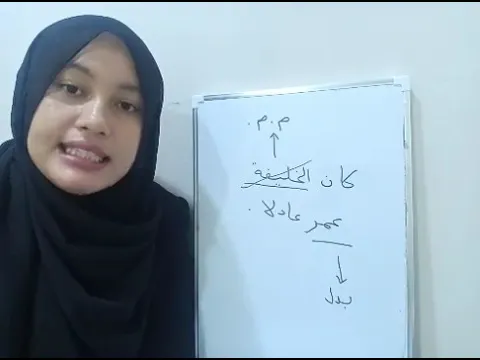 م.م.
كان الخليفة
عمر عادلا.
بدل